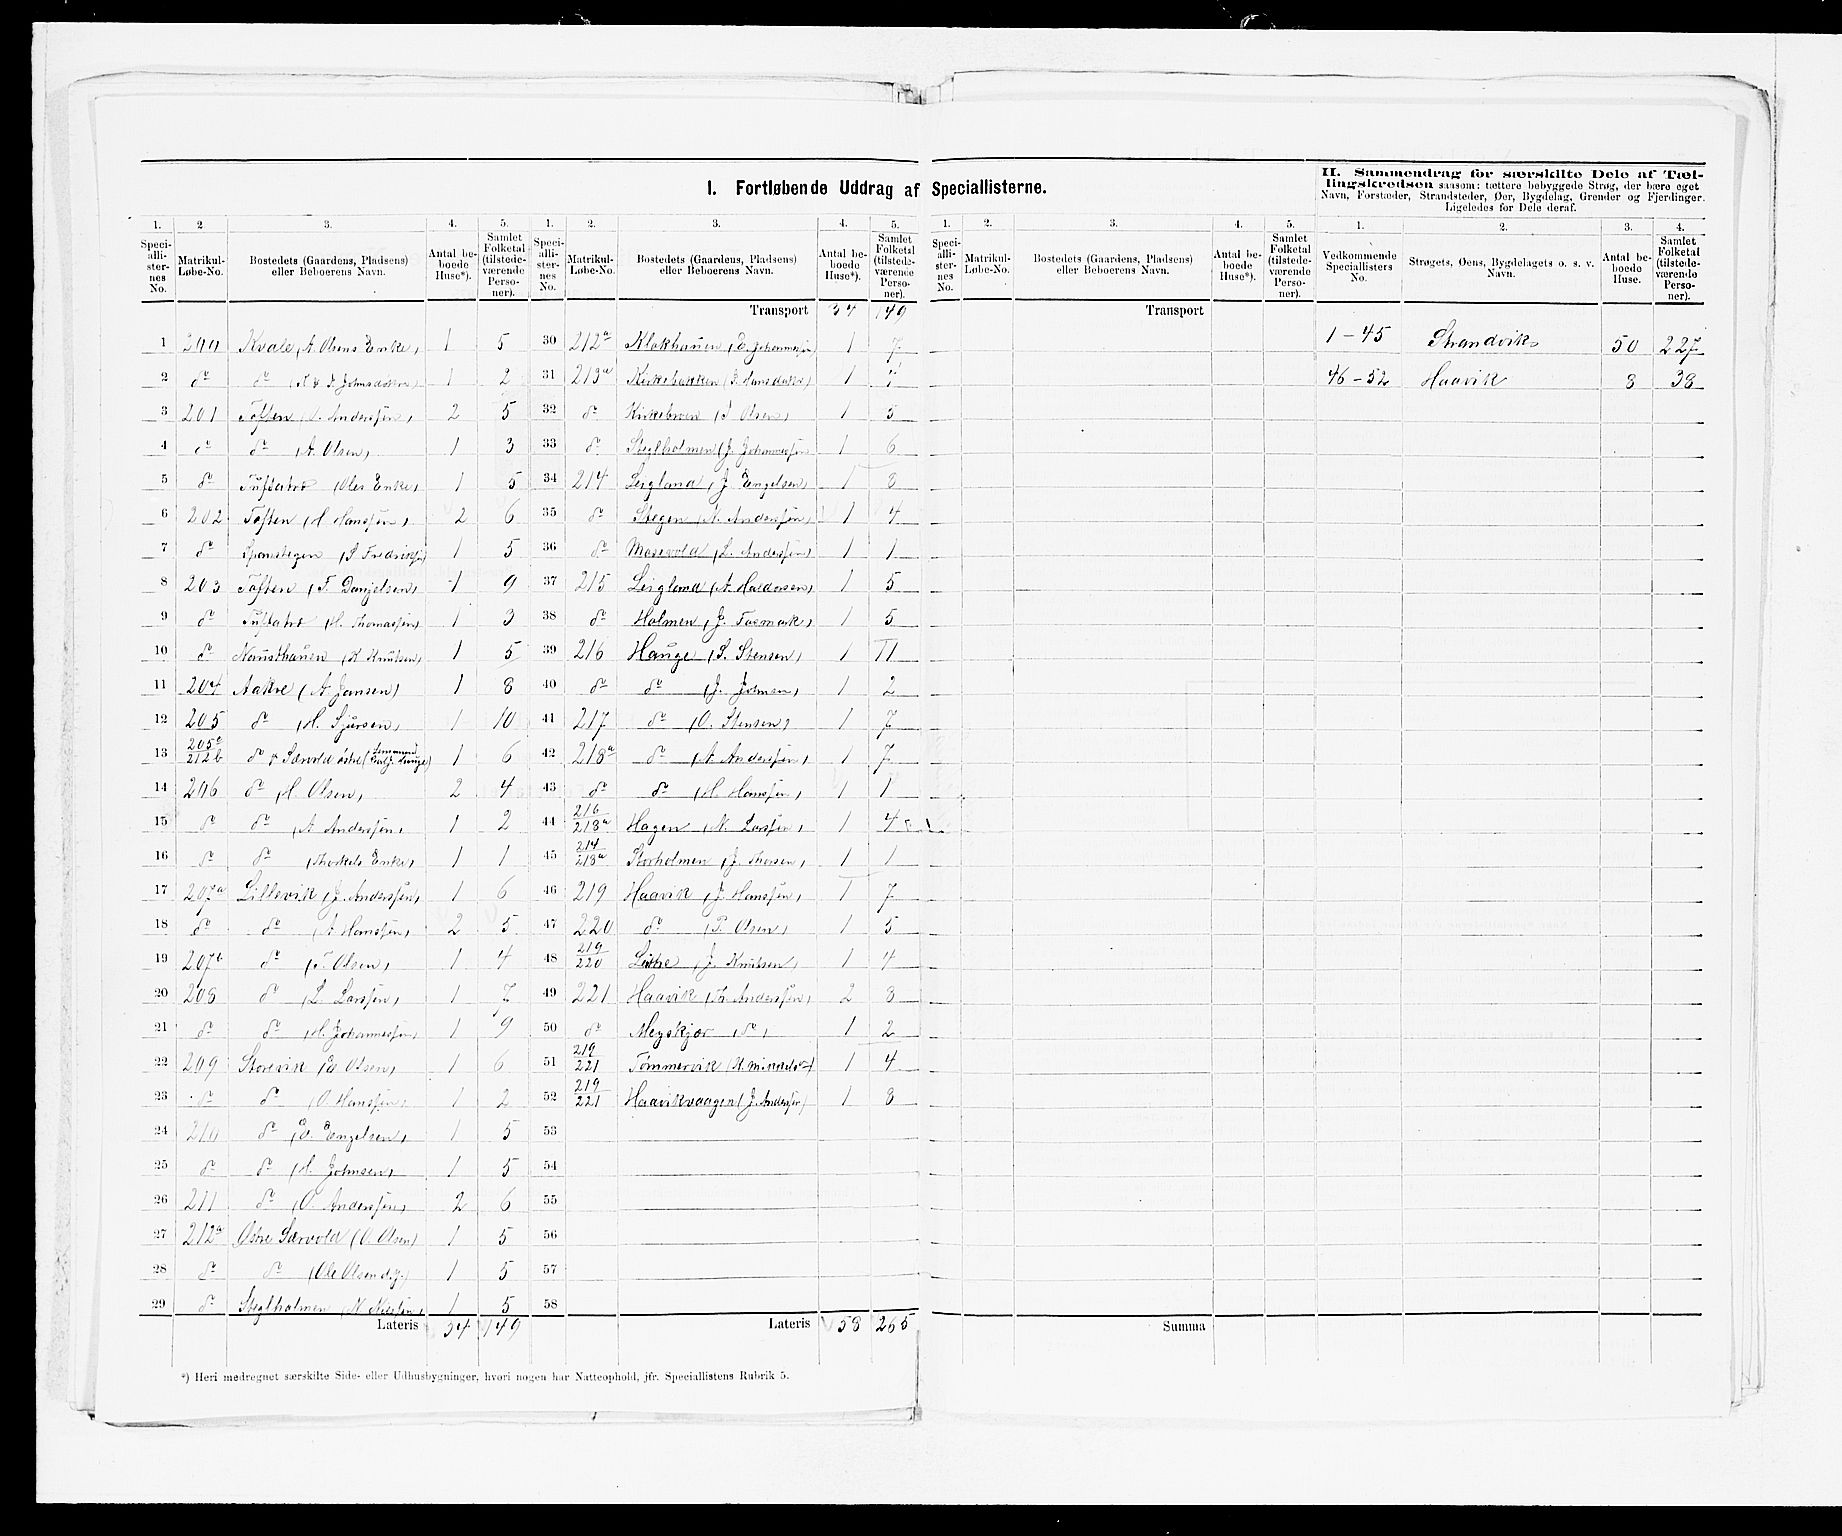 I. Fortløbende Uddrag af Speciallisterne.
1. 2 3. 4. 5.
Speciallisternes No. Matrikul-Løbe-No. Bostedets (Gaardens, Pladsens) eller Beboerens Navn. Antal beboede Huse*). Samlet Folketal (tilstedeværende Personer).
1 200 Kvale (A. Olsens Enke) 1 5
2 do do 1 2
3 201 Toften (J. Anderssen) 2 5
4 do do (A. Olsen) 1 3
5 do Tuftabrø (Oles Enke) 1 5
6 202 Toften (H Hanssen) 2 6
7 do (P Fredriksen) 1 5
8 203 Toften (T. Danjelsen) 1 9
9 do Tuftabrø (H. Thomassen) 1 3
10 do Nousthauen (K Knutsen) 1 5
11 204 Aakre (A Jansen) 1 8
12 205 do (H. Sjursen) 1 10
13 205a/212b do & Særvold østre 1 6
14 206 do (H. Olsen) 2 4
15 do do (A Anderssen) 1 2
16 do do (Thorkels Enke) 1 1
17 207a Lillevik (J. Anderssen) 1 6
18 do do (A Hanssen) 2 5
19 207b do (T. Olsen) 1 4
20 208 do (L. Larssen) 1 7
21 do do (H. Johannessen) 1 9
22 209 Storevik (E Olsen) 1 6
23 do do (O. Hanssen) 1 2
24 210 do (E. Engelsen) 1 5
25 do do (H. Johnsen) 1 5
26 211 do (O. Anderssen) 2 6
27 212a Østre Særvold (O. Olsen) 1 5
28 do do (Ole Olsen d.y.) 1 5
29 do Steglholmen 1 5
Lateris 34 149
1. 2. 3. 4. 5.
Speciallisternes No. Matrikul-Løbe-No. Bostedets (Gaardens, Pladsens) eller Beboerens Navn. Antal beboede Huse*). Samlet Folketal (tilstedeværende Personer).
Transport 34 149
30 212a Klokhauen (E. Johannessen) 1 7
31 213a Kirkebakken 1 7
32 do (J Olsen) 1 5
33 do Steglholmen (J. Johannessen) 1 6
34 214 Leigland (J. Engelsen) 1 8
35 do Stegen (N. Anderssen) 1 4
36 do Mosevold (L. Anderssen) 1 1
37 215 Leigland (A. Haldorsen) 1 5
38 do Holmen (J. Fosmark) 1 5
39 216 Hauge (S. Stensen) 1 11
40 do do (J. Johnsen) 1 2
41 217 do (O. Stensen) 1 7
42 218a do (A Anderssen) 1 7
43 do do (H. Hanssen) 1 1
44 216/218a Hagen (N. Larssen) 1 4
45 214/218a Storholmen (J. Thorsen) 1 1
46 219 Haavik (J Hanssen) 1 7
47 220 do (P. Olsen) 1 5
48 219/220 (J. Knutsen) 1 4
49 221 Haavik (A. Anderssen) 2 8
50 do Meyskjær (do) 1 2
51 219/221 Tømmervik 1 4
52 219/221 Haavikvaagen (J. Anderssen) 1 8
53
54
55
56
57
58
Lateris 58 265
*) Heri medregnet særskilte Side- eller Udhusbygninger, hvori nogen har Natteophold, jfr. Speciallistens Rubrik 5.
1. 2. 3. 4. 5.
Speciallisternes No. Matrikul-Løbe-No. Bostedets (Gaardens, Pladsens) eller Beboerens Navn. Antal beboede Huse*). Samlet Folketal (tilstedeværende Personer).
Transport
Summa
II. Sammendrag for særskilte Dele af Tællingskredsen saasom: tættere bebyggede Strøg, der bære eget
Navn, Forstæder, Strandsteder, Øer, Bygdelag, Grender og Fjerdinger.
Ligeledes for Dele deraf.
1. 2. 3. 4.
Vedkommende Speciallisters No. Strøgets, Øens, Bygdelagets o. s. v. Navn. Antal beboede Huse. Samlet Folketal (tilstedeværende Personer).
1 - 45 Strandvik 50 227
46 - 52 Haavik 8 38